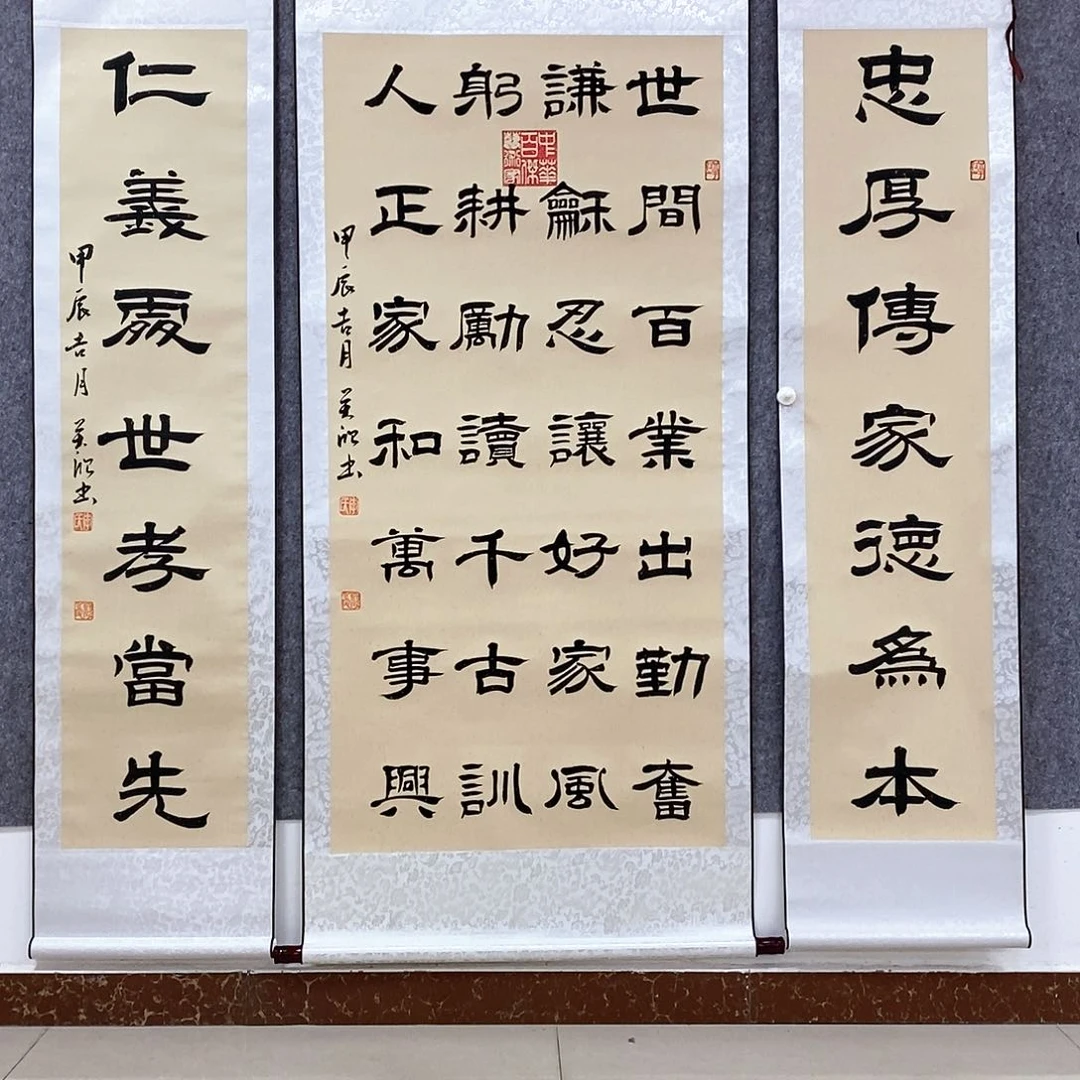 忠厚傳家德為本
世間百業出勤奮
謙龢忍讓好家風
躬耕勵讀千古訓
人正家和萬事興
甲辰吉月 书
中華
百傑
藝術家
仁義處世孝當先
甲辰吉月 书